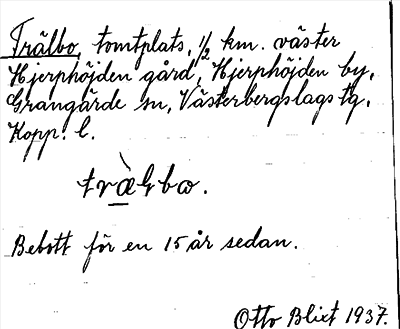 Trälbo, tomtplats, 1/2 km. väster
Hjerphöjden gård, Hjerphöjden by,
Grangärde sn, Västerbergslags tg,
Kopp. l.
træ̀ɬbω.
Bebott för en 15 år sedan.
Otto Blixt 1937.